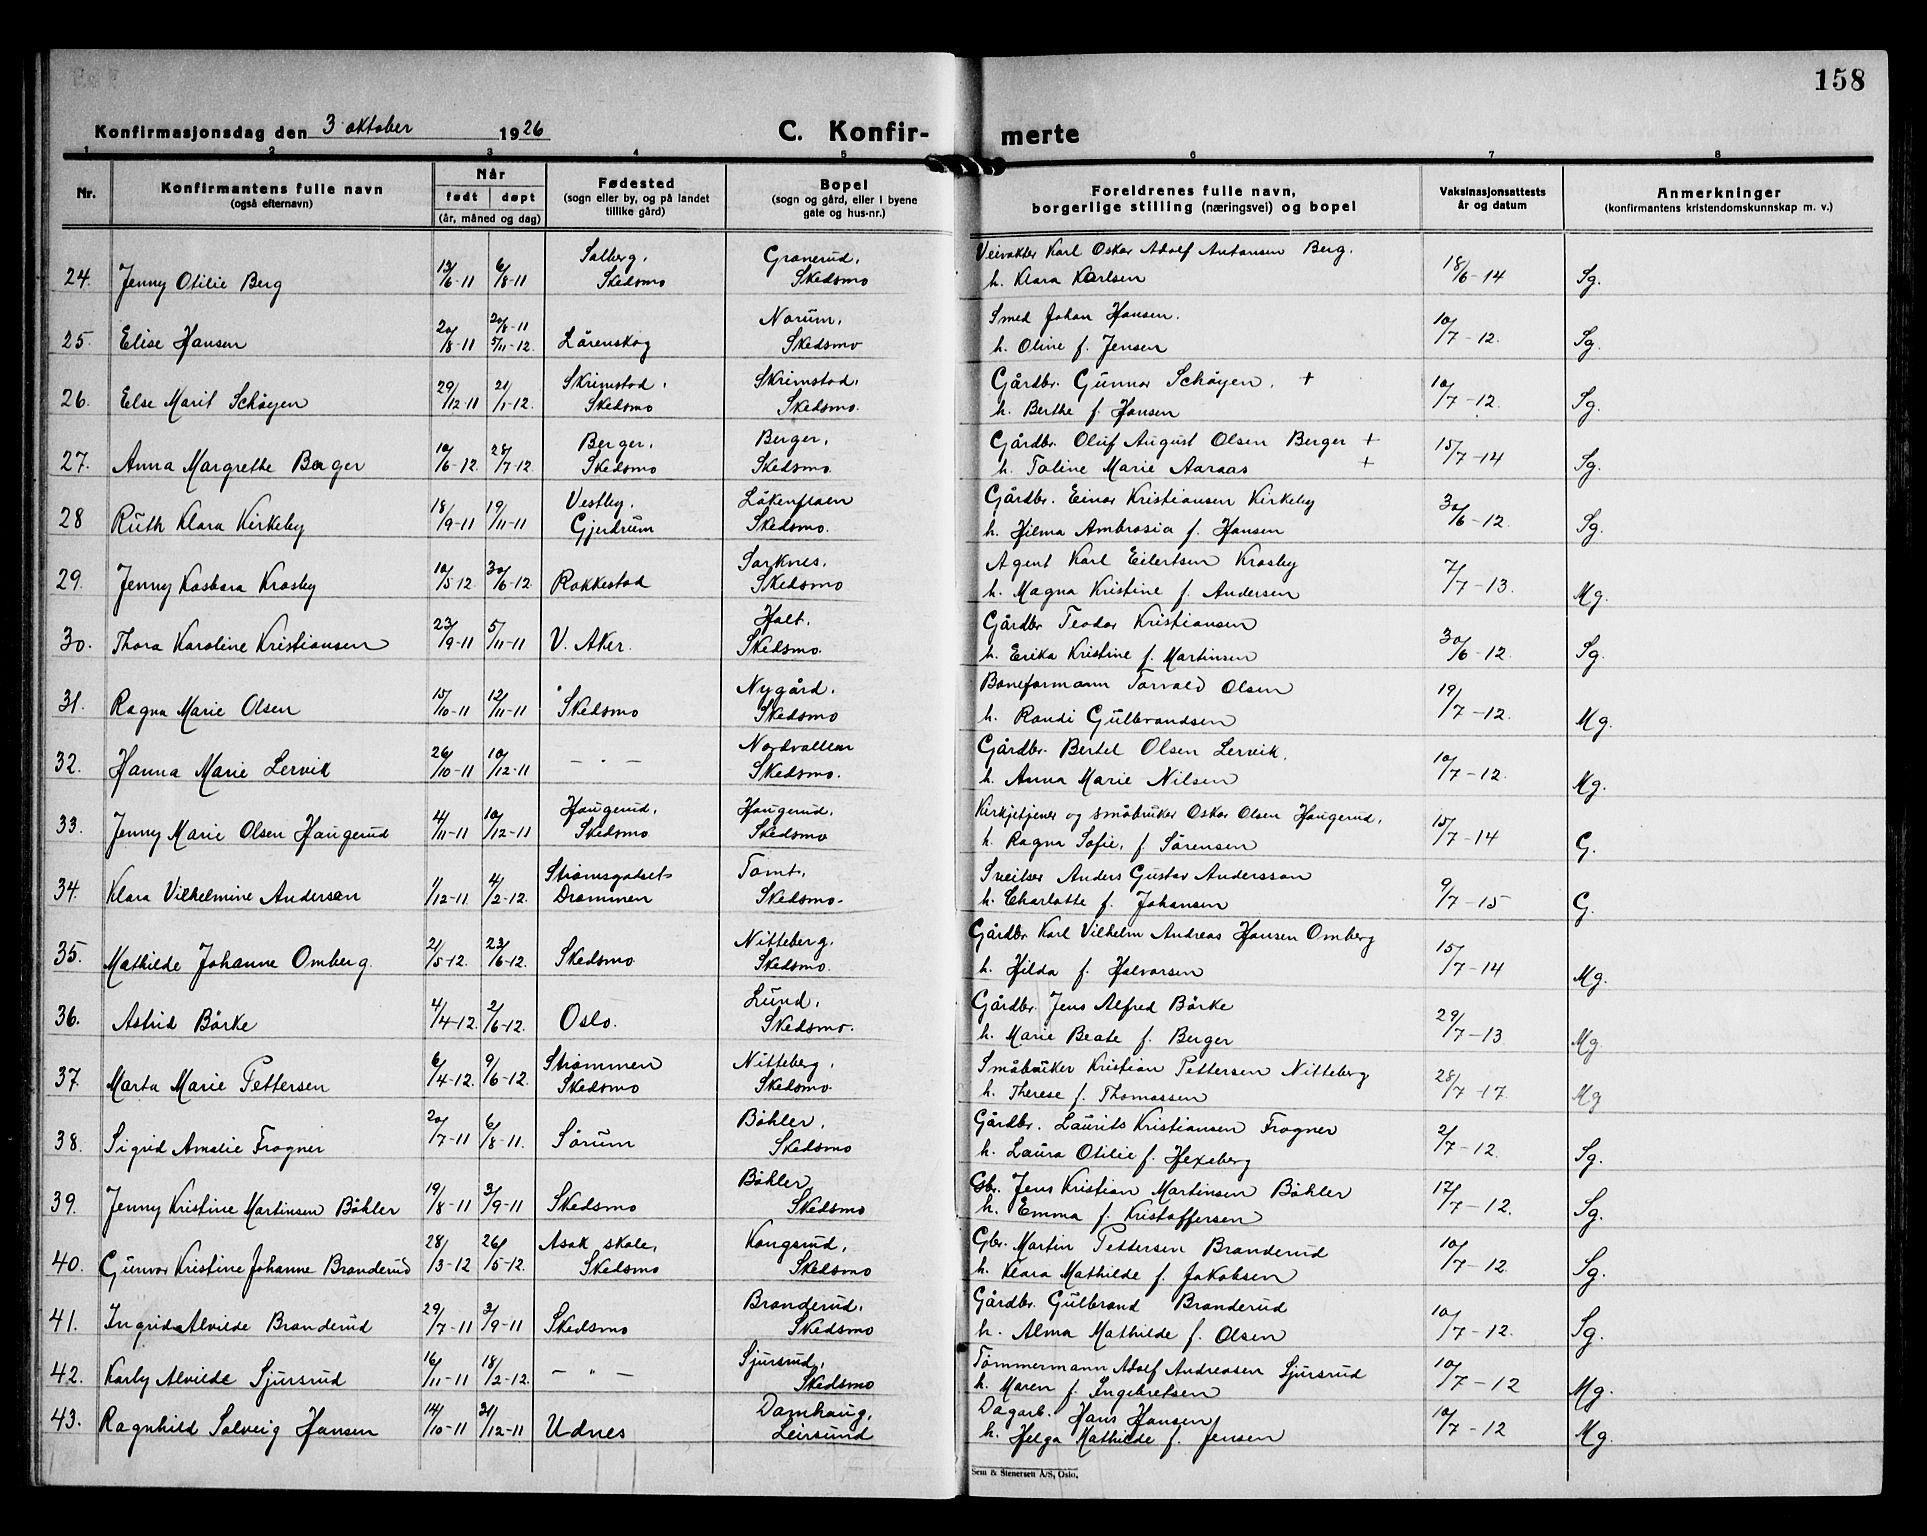 158
Konfirmasjonsdag den 3 oktober 1926 C. Konfir- merte
1 2 3 4 5 6 7 8
Nr. Konfirmantens fulle navn (også efternavn) Når født døpt (år, måned og dag) Fødested (sogn eller by, og på landet tillike gård) Bopel (sogn og gård, eller i byene gate og hus-nr.) Foreldrenes fulle navn, borgerlige stilling (næringsvei) og bopel Vaksinasjonsattests år og datum Anmerkninger (konfirmantens kristendomskunnskap m. v.)
24. Jenny Otilie Berg 13/6-11 6/8-11 Solberg, Skedsmo Granerud, Skedsmo Veivokter Karl Oskar Adolf Antonsen Berg. h. Klara Karlsen 18/6-14 Sg.
25. Elise Hansen 20/8-11 20/8-11 5/11-12. Lørenskog Norum, Skedsmo Smed Johan Hansen. h. Oline f. Jensen 10/7-12. Sg.
26. Else Marit Schøyen 29/12-11 21/1-12. Skrimstad, Skedsmo Skrimstad, Skedsmo. Gårdbr. Gunnar Schøyen. + h. Berthe f. Hansen 10/7-12. Sg.
27. Anna Margrethe Berger 10/6-12. 28/7-12. Berger, Skedsmo Berger, Skedsmo. Gårdbr. Oluf August Olsen Berger + h. Toline Marie Aaraas + 15/7-14 Sg.
28 Ruth Klara Kirkeby 18/9-11 19/11-11 Vestby, Gjerdrum Løkenflaen Skedsmo. Gårdbr. Einar Kristiansen Kirkeby h. Hilma Ambrosia f. Hansen 30/6-12. Sg.
29. Jenny Kasbara Krosby 10/5-12 30/6-12. Rakkestad Sarknes, Skedsmo Agent Karl Eilertsen Krosby h. Magna Kristine f. Andersen 7/7-13. Mg.
30. Thora Karoline Kristiansen 23/9-11 5/11-11 V. Aker. Holt, Skedsmo. Gårdbr Teodor Kristiansen h. Erika Kristine f. Martinsen 30/6-12. Sg.
31. Ragna Marie Olsen 15/10-11 12/11-11 Skedsmo Nygård, Skedsmo Baneformann Torvald Olsen h. Randi Gulbrandsen 19/7-12. Mg.
32. Hanna Marie Lervik 26/10-11 10/12-11 - " - Nordvollen Skedsmo. Gårdbr. Bertel Olsen Lervik. h. Anna Marie Nilsen 10/7-12. Mg.
33. Jenny Marie Olsen Haugerud 4/11-11 10/12-11 Haugerud, Skedsmo Haugerud, Skedsmo Kirkjetjener og småbruker Oskar Olsen Haugerud, h. Ragna Sofie, f. Sørensen 15/7-14 G.
34. Klara Vilhelmine Andersen 1/12-11 4/2-12. Strømsgodset Drammen Tomt, Skedsmo. Sveitser Anders Gustav Andersson h. Charlotte f. Johansen 9/7-15 G.
35. Mathilde Johanne Omberg. 21/5-12. 23/6-12. Skedsmo Nitteberg. Skedsmo. Gårdbr Karl Vilhelm Andreas Hansen Omberg h. Hilda f. Halvorsen 15/7-14 Mg.
36. Astrid Børke 4/4-12. 2/6-12. Oslo. Lund, Skedsmo. Gårdbr. Jens Alfred Børke h. Marie Beate f. Berger 29/7-13 Mg
37. Marta Marie Pettersen 6/4-12. 9/6-12. Strømmen Skedsmo Nitteberg, Skedsmo. Småbruker Kristian Pettersen Nitteberg h. Therese f. Thomassen 28/7-17. Mg
38. Sigrid Amalie Frogner 20/7-11 6/8-11. Sørum Bøhler, Skedsmo Gårdbr. Laurits Kristiansen Frogner h. Laura Otilie f. Hexeberg 2/7-12. Sg.
39. Jenny Kristine Martinsen Bøhler 19/8-11 3/9-11 Skedsmo Bøhler, Skedsmo Gbr. Jens Kristian Martinsen Bøhler h. Emma f. Kristoffersen 17/7-12. Sg.
40. Gunvor Kristine Johanne Branderud 28/3-12 26/5-12. Asak skole, Skedsmo Kongsrud, Skedsmo Gbr. Martin Pettersen Branderud h. Klara Mathilde f. Jakobsen 10/7-12. Sg.
41. Ingrid Alvilde Branderud 29/7-11 3/9-11 Skedsmo Branderud, Skedsmo Gårdbr. Gulbrand Branderud h. Alma Mathilde f. Olsen 10/7-12. Sg.
42. Karly Alvilde Sjursrud 16/11-11 18/2-12. - " - Sjursrud, Skedsmo Tømmermann Adolf Andreasen Sjursrud h. Maren f. Ingebretsen 10/7-12 Mg.
43. Ragnhild Solveig Hansen 14/10-11 31/12-11 Udnes Damhaug, Leirsund Dagarb. Hans Hansen h. Helga Mathilde f. Jensen 10/7-12 Mg.
Sem & Stenersen A/S, Oslo.